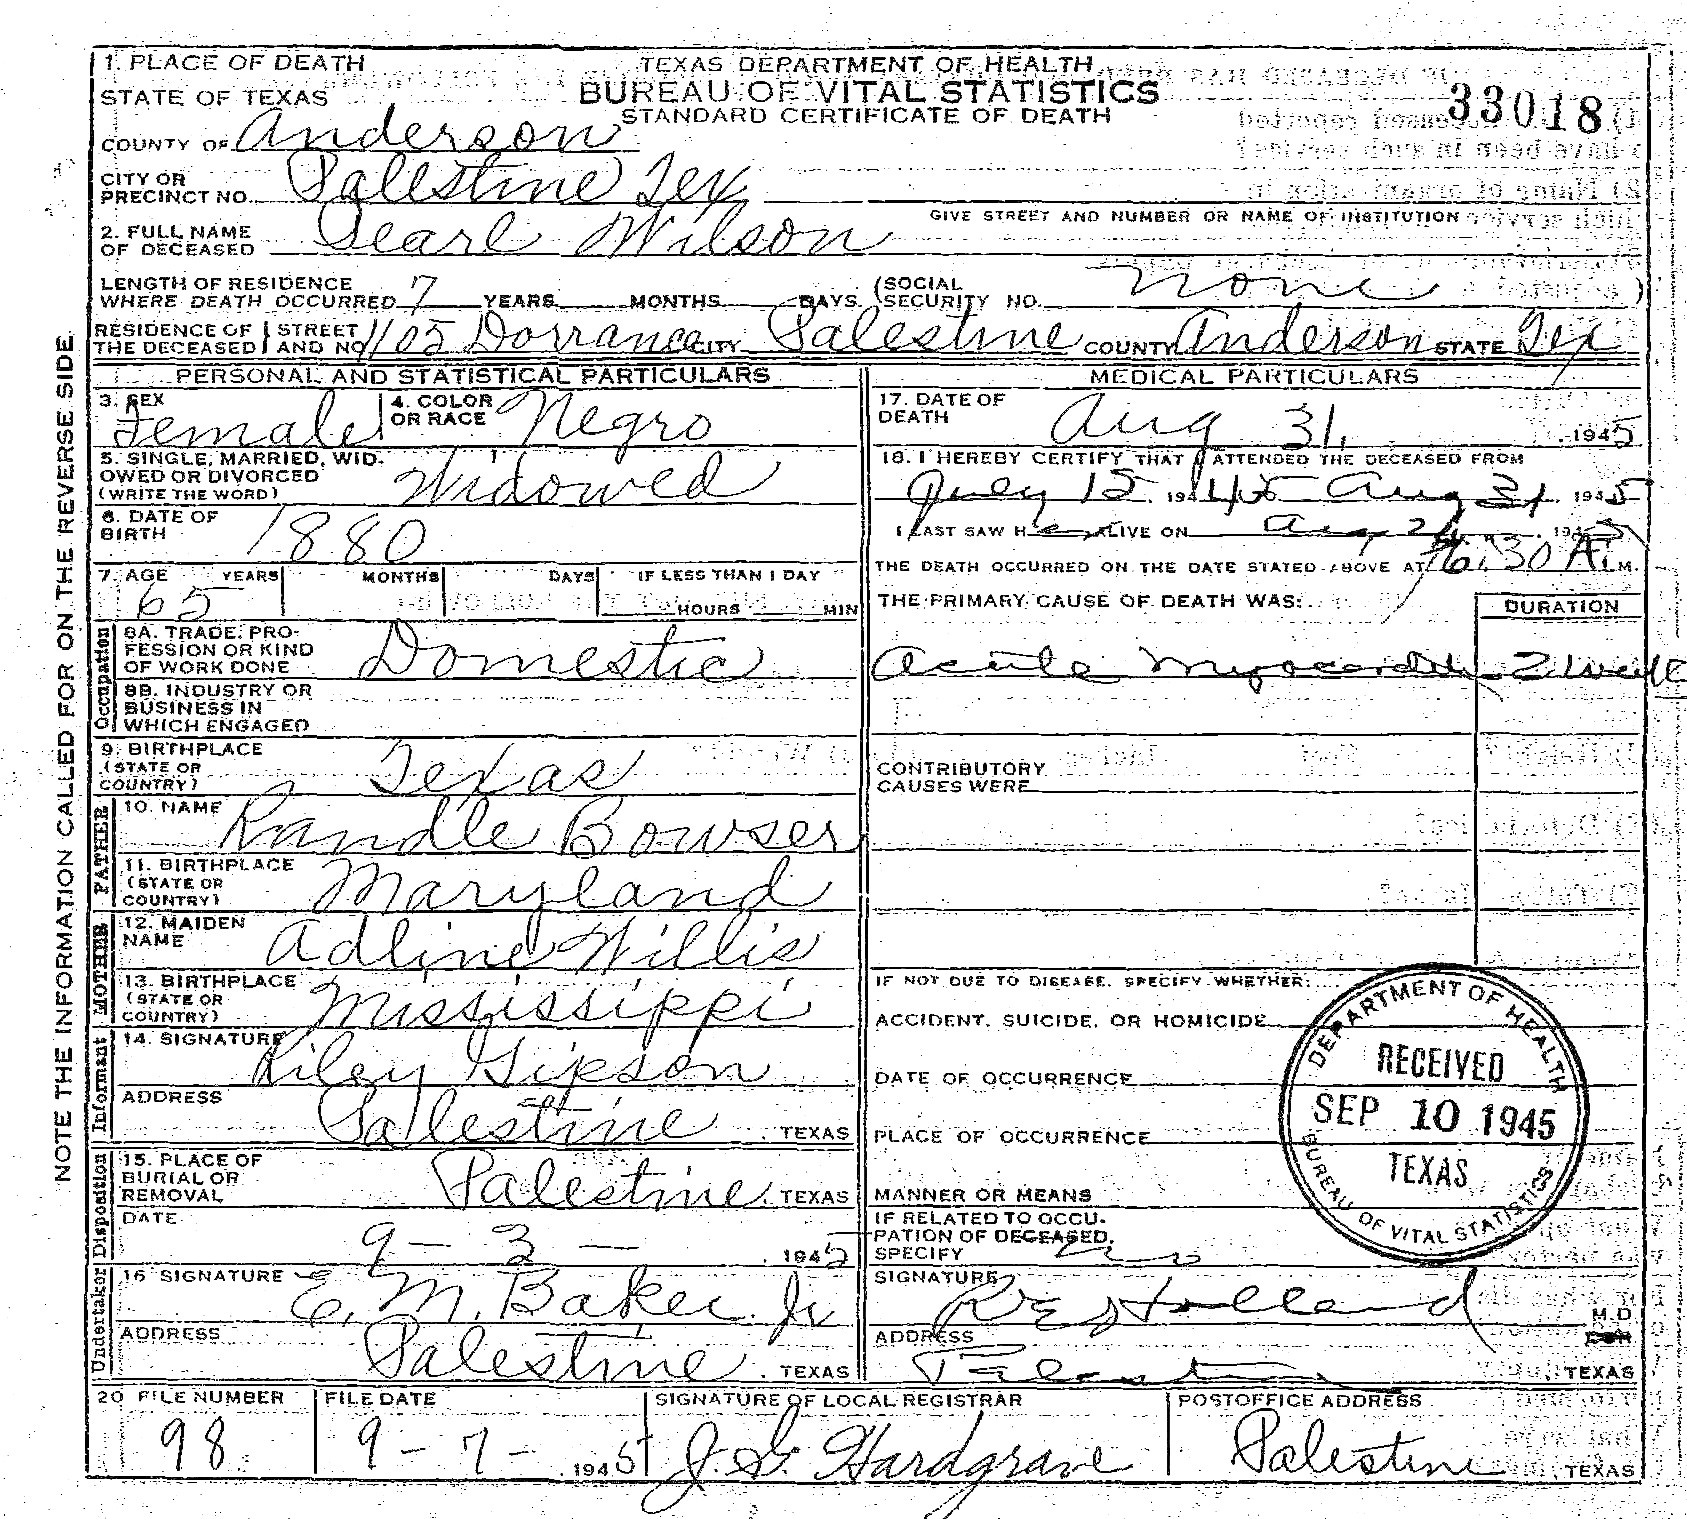 1. PLACE OF DEATH
STATE OF TEXAS
TEXAS DEPARTMENT OF HEALTH
BUREAU OF VITAL STATISTICS
STANDARD CERTIFICATE OF DEATH
33018
COUNTY OF Anderson
CITY OR PRECINCT NO. Palestine Tex
GIVE STREET AND NUMBER OR NAME OF INSTITUTION
2. FULL NAME OF DECEASED Pearl Wilson
LENGTH OF RESIDENCE WHERE DEATH OCCURRED 7 YEARS MONTHS DAYS (SOCIAL SECURITY NO. none )
RESIDENCE OF THE DECEASED STREET AND NO. 1105 Dorrance CITY Palestine COUNTY Anderson STATE Tex
PERSONAL AND STATISTICAL PARTICULARS
3. SEX Female
4. COLOR OR RACE Negro
5. SINGLE, MARRIED, WIDOWED OR DIVORCED (WRITE THE WORD) Widowed
6. DATE OF BIRTH 1880
7. AGE YEARS MONTHS DAYS IF LESS THAN 1 DAY
65 HOURS MIN
Occupation
8A. TRADE, PROFESSION OR KIND OF WORK DONE Domestic
8B. INDUSTRY OR BUSINESS IN WHICH ENGAGED
9. BIRTHPLACE (STATE OR COUNTRY) Texas
FATHER
10. NAME Randle Bowser
11. BIRTHPLACE (STATE OR COUNTRY) Maryland
MOTHER
12. MAIDEN NAME Adline Willis
13. BIRTHPLACE (STATE OR COUNTRY) Mississippi
Informant
14. SIGNATURE Riley Gipson
ADDRESS Palestine TEXAS
Disposition
15. PLACE OF BURIAL OR REMOVAL Palestine TEXAS
DATE 9-3- 1945
Undertaker
16 SIGNATURE E. M. Baker Jr
ADDRESS Palestine TEXAS
MEDICAL PARTICULARS
17. DATE OF DEATH Aug 31, 1945
18. I HEREBY CERTIFY THAT I ATTENDED THE DECEASED FROM
July 15 1945 Aug 31 1945
I LAST SAW H er ALIVE ON Aug 1945
THE DEATH OCCURRED ON THE DATE STATED ABOVE AT 6:30 A.M.
THE PRIMARY CAUSE OF DEATH WAS: DURATION
acute myocarditis 2 week
CONTRIBUTORY CAUSES WERE
IF NOT DUE TO DISEASE, SPECIFY WHETHER:
ACCIDENT, SUICIDE, OR HOMICIDE
DATE OF OCCURRENCE
PLACE OF OCCURRENCE
MANNER OR MEANS
IF RELATED TO OCCUPATION OF DECEASED, SPECIFY no
SIGNATURE Holland M.D.
ADDRESS Palestine TEXAS
DEPARTMENT OF HEALTH
RECEIVED
SEP 10 1945
TEXAS
BUREAU OF VITAL STATISTICS
20 FILE NUMBER 98
FILE DATE 9-7- 1945
SIGNATURE OF LOCAL REGISTRAR Hardgrave
POSTOFFICE ADDRESS Palestine TEXAS
NOTE THE INFORMATION CALLED FOR ON THE REVERSE SIDE